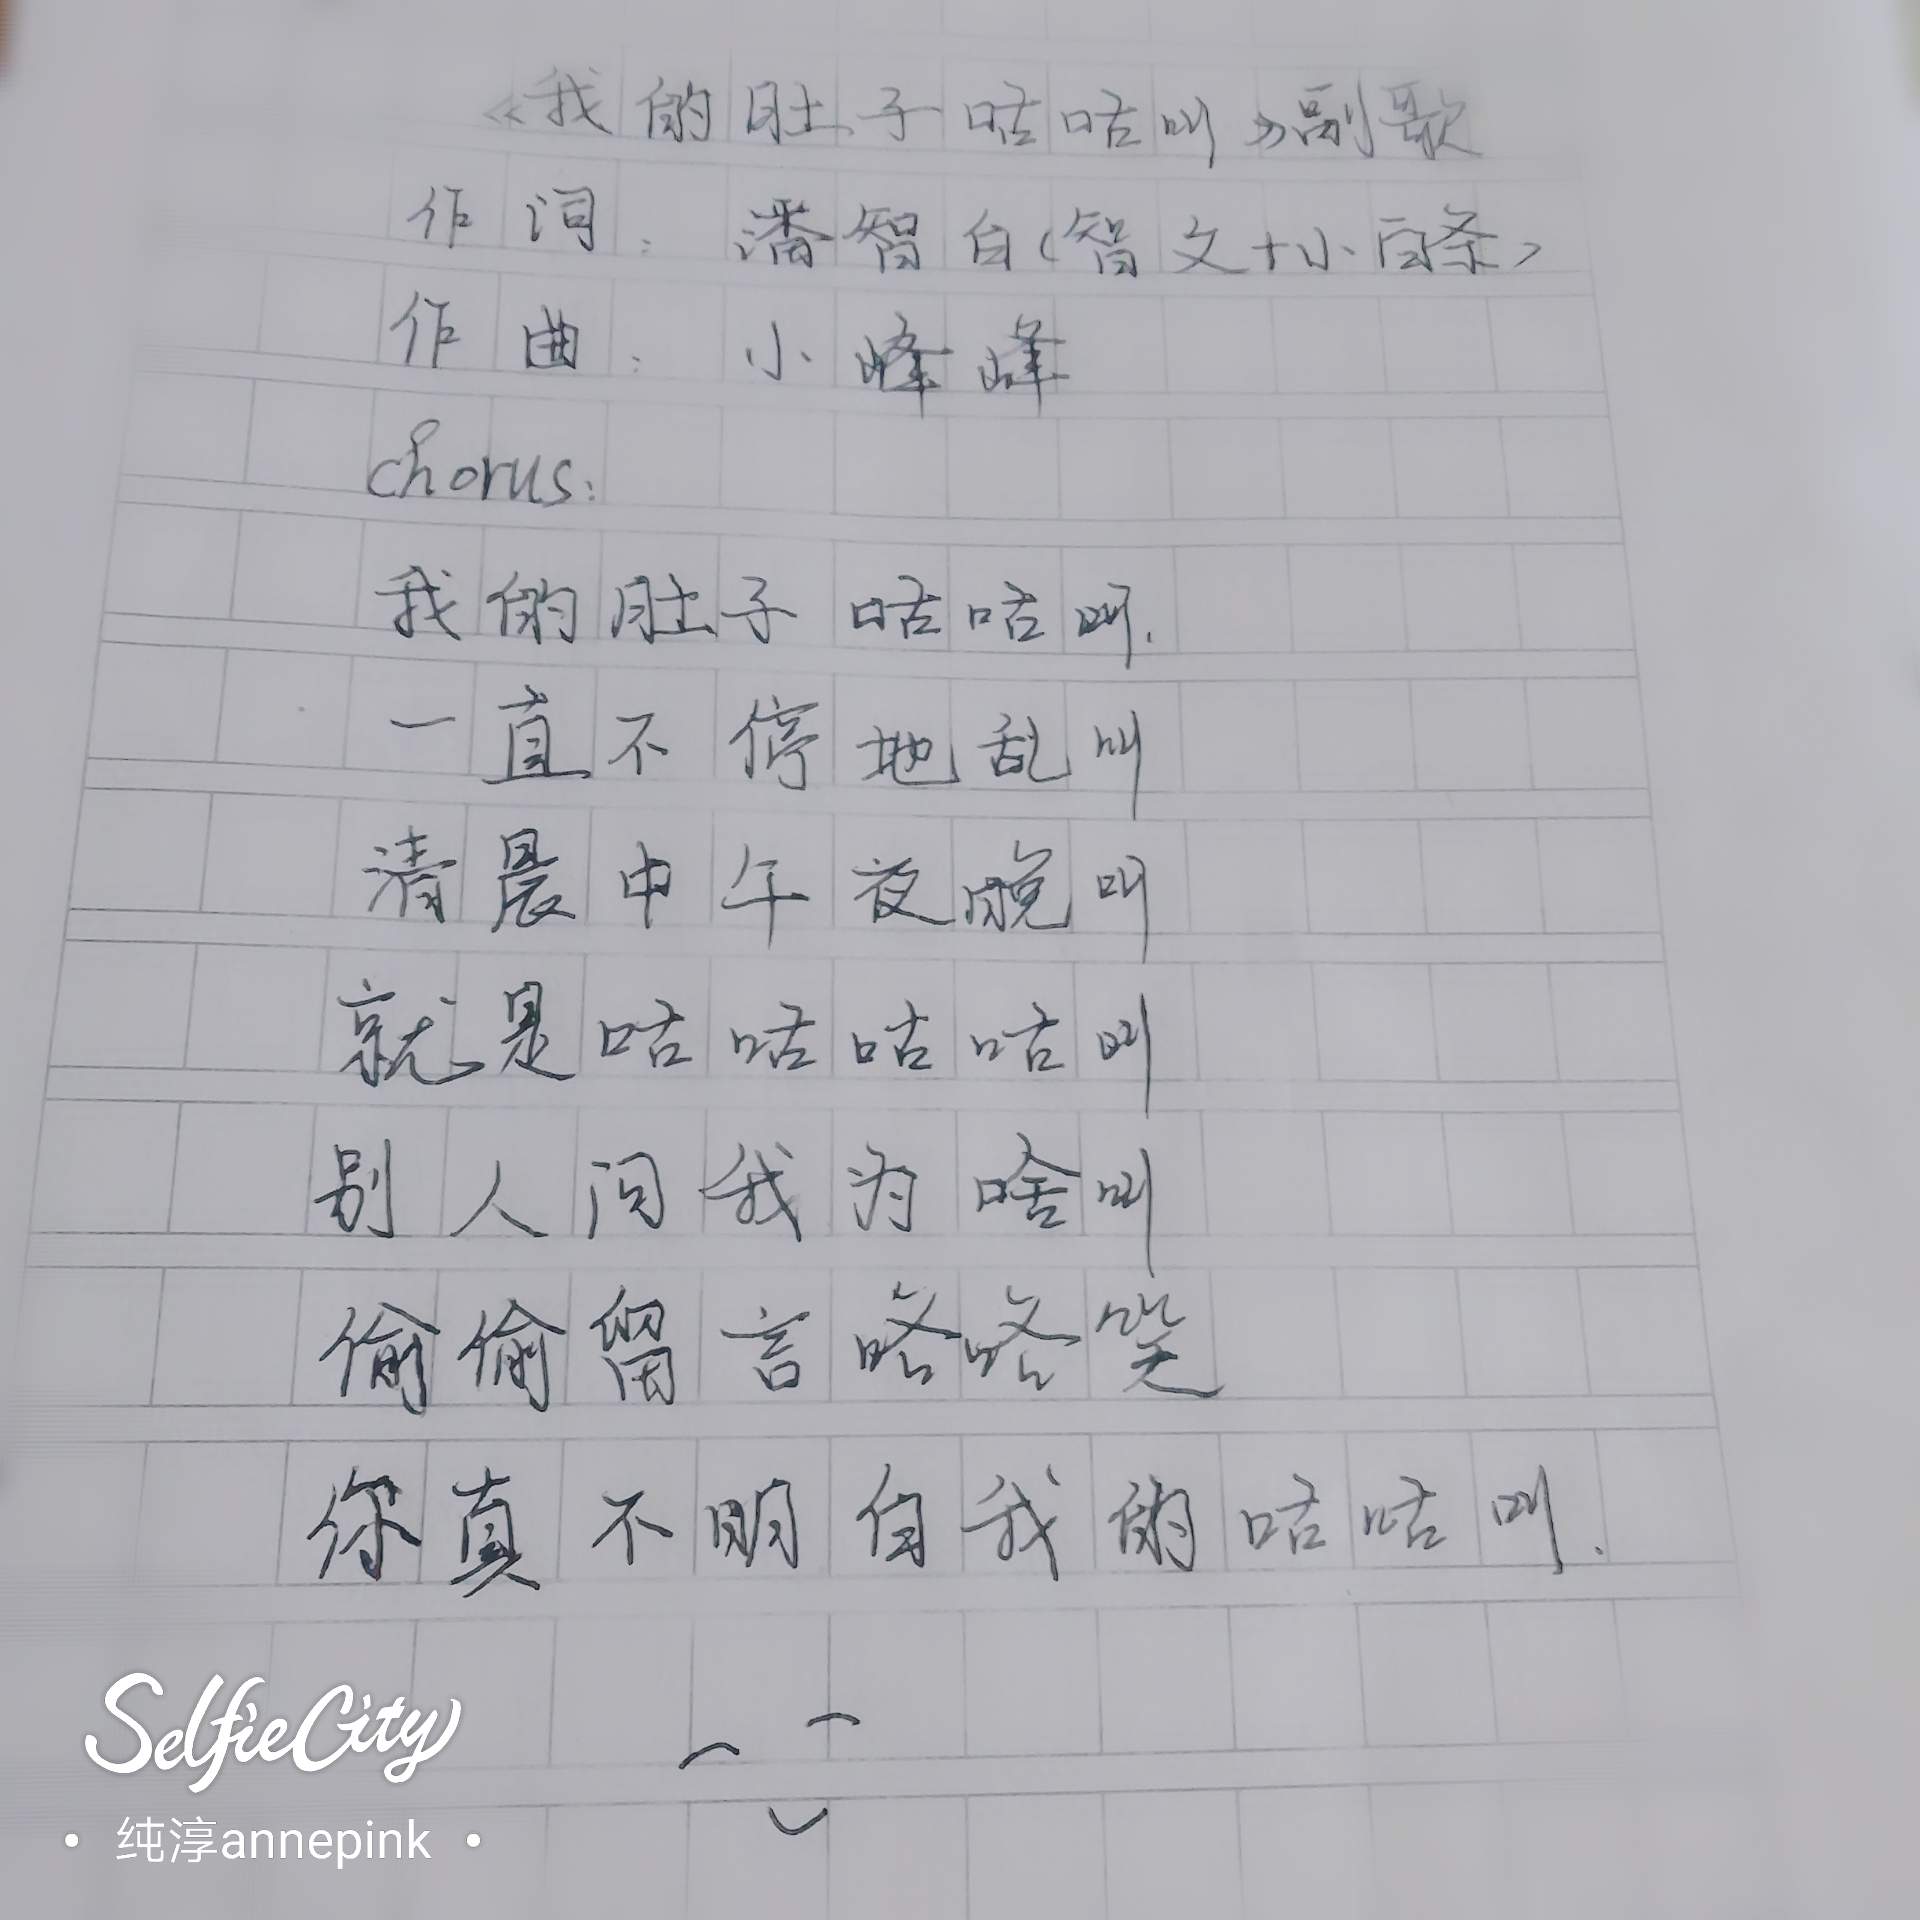 《我的肚子咕咕叫》副歌
作词：潘智白（智文+小白条）
作曲：小峰峰
Chorus:
我的肚子咕咕叫.
一直不停地乱叫
清晨中午夜晚叫
就是咕咕咕咕叫
别人问我为啥叫
偷偷留言咯咯笑
你真不明白我的咕咕叫.
SelfieCity
• 纯淳annepink •